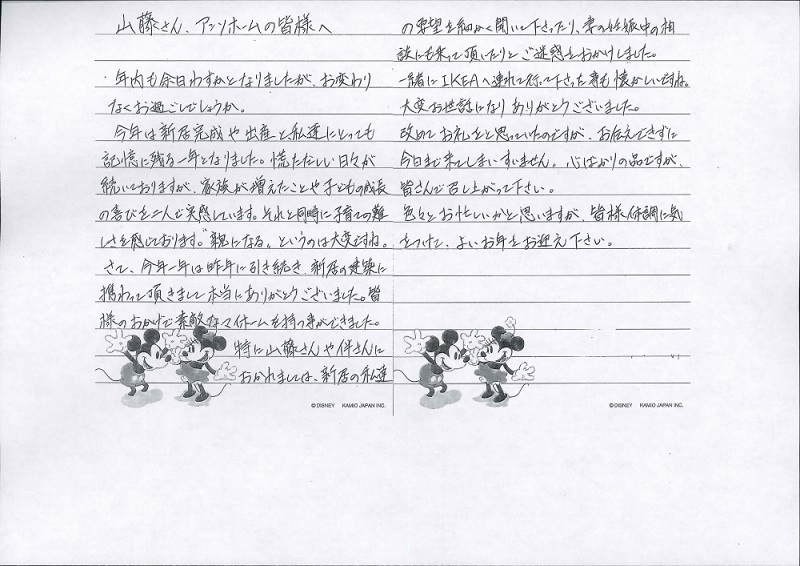 山藤さん、アンソホームの皆様へ
年内も余日わずかとなりましたが、お変わり
なくお過ごしでしょうか。
今年は新居完成や出産と私達にとっても
記憶に残る一年となりました。慌ただしい日々が
続いておりますが、家族が増えたことや子どもの成長
の喜びを二人で実感しています。それと同時に子育ての難
しさを感じております。"親になる"というのは大変ですね。
さて、今年一年は昨年に引き続き、新居の建築に
携わって頂きまして本当にありがとうございました。皆
様のおかげで素敵なマイホームを持つ事ができました。
特に山藤さんや伴さんに
おかれましては、新居の私達
©DISNEY KAMIO JAPAN INC.
の要望を細かく聞いて下さったり、妻の妊娠中の相
談にも来て頂いたりとご迷惑をおかけしました。
一緒にIKEAへ連れて行って下さった事も懐かしいですね。
大変お世話になりありがとうございました。
改めてお礼をと思っていたのですが、お伝えできずに
今日まで来てしまいすいません。心ばかりの品ですが、
皆さんで召し上がって下さい。
色々とお忙しいかと思いますが、皆様体調に気
をつけて、よいお年をお迎え下さい。
©DISNEY KAMIO JAPAN INC.